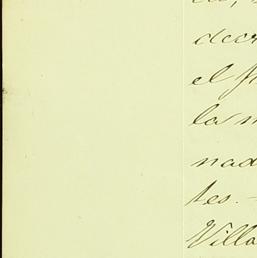 decr
el
la
nad
tes.-
Villa